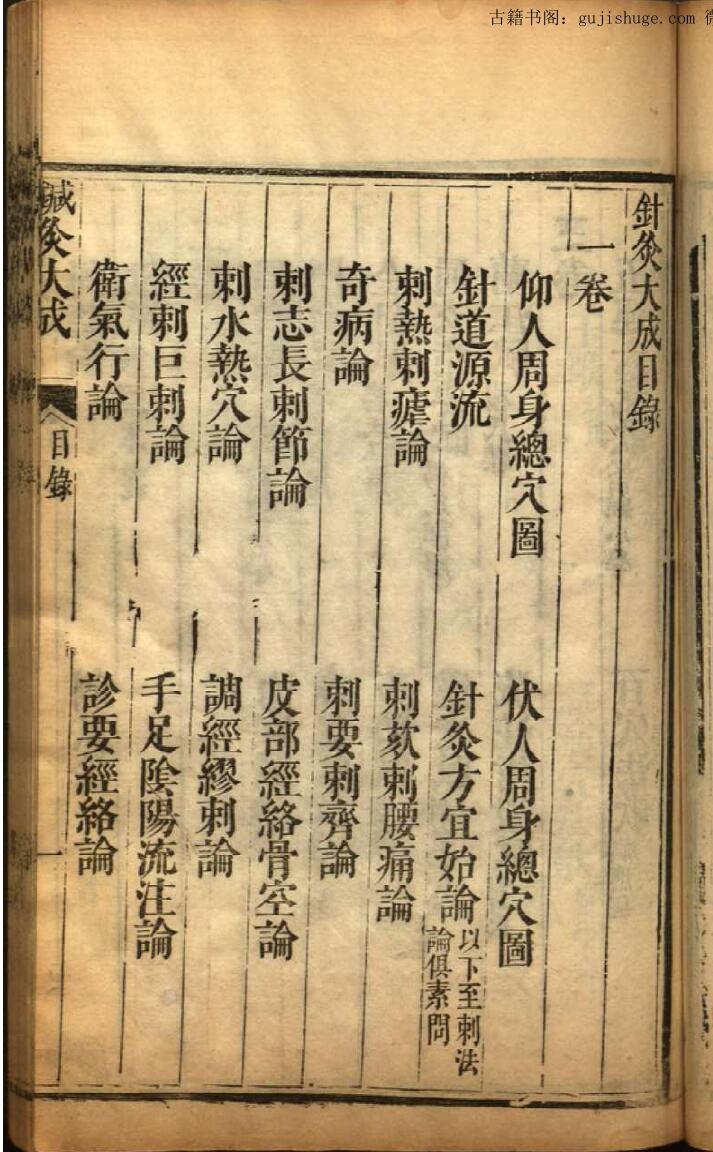 古籍书阁：gujishuge.com 微
針灸大成目錄
一卷
仰人周身總穴圖　伏人周身總穴圖
針道源流　針灸方宜始論以下至刺法論俱素問
刺熱刺瘧論　刺欬刺腰痛論
奇病論　刺要刺齊論
刺志長刺節論　皮部經絡骨空論
刺水熱穴論　調經繆刺論
經刺巨刺論　手足陰陽流注論
衛氣行論　診要經絡論
鍼灸大成　目錄　一